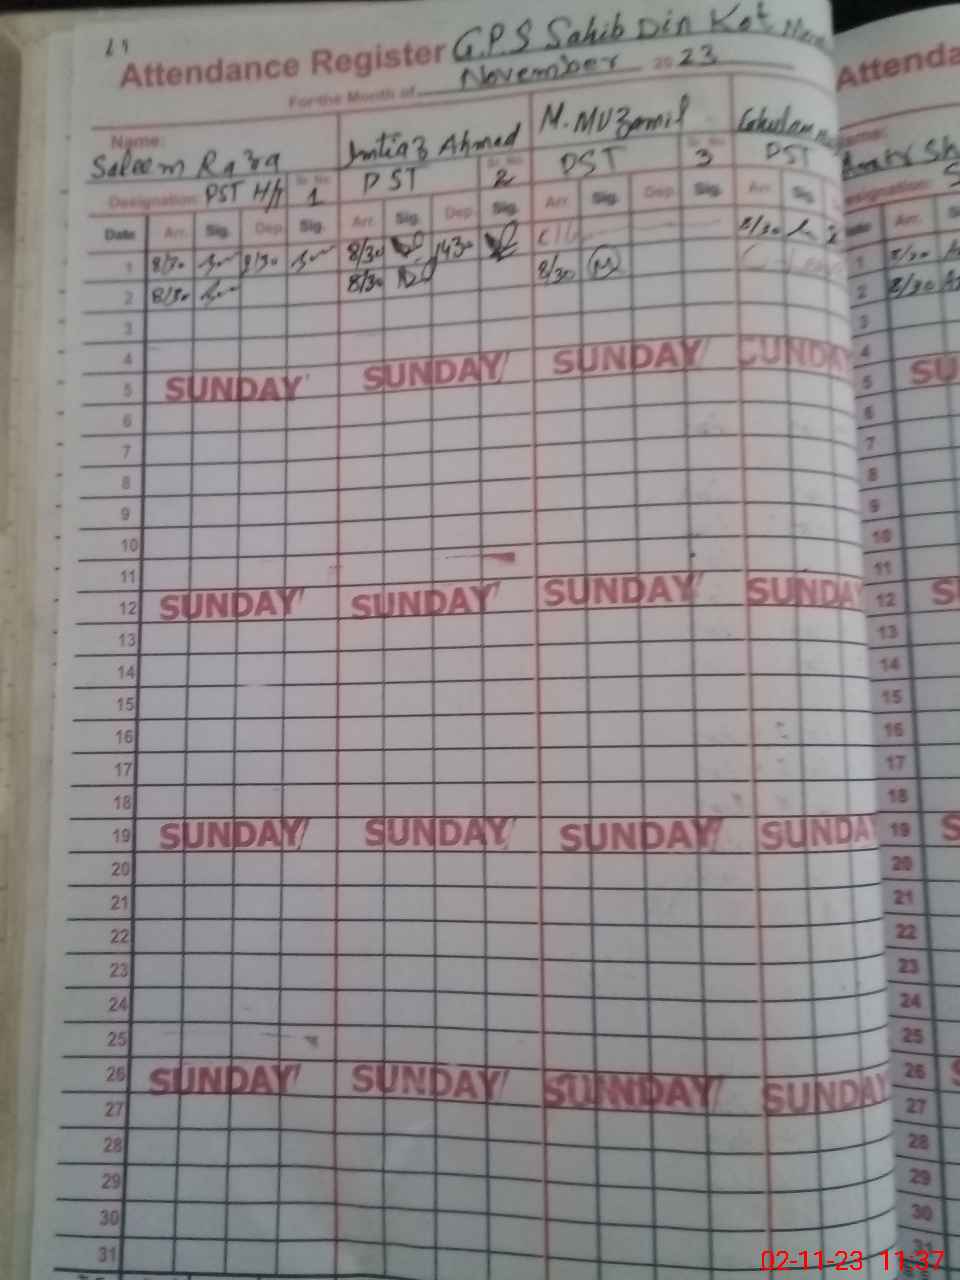 Attendance Register G.P.S Sahib Din Kot
For the Month of November 2023
Name: Saleem Raza
Imtiaz Ahmad
M. MUZamil
Ghulam
Designation: PST H/t Sr. No. 1
PST 2
PST Sr. No. 3
PST
Date Arr. Sig. Dep. Sig. Arr. Sig. Dep. Sig. Arr. Sig. Dep. Sig. Arr. Sig.
1 8/30 8/30 1430 8/30
2 8/30 8/30 8/30 M
3
4
5 SUNDAY SUNDAY SUNDAY SUNDAY
6
7
8
9
10
11
12 SUNDAY SUNDAY SUNDAY SUNDAY
13
14
15
16
17
18
19 SUNDAY SUNDAY SUNDAY SUNDAY
20
21
22
23
24
25
26 SUNDAY SUNDAY SUNDAY SUNDAY
27
28
29
30
31
Attenda
Designation:
Arr.
1
2 8/30
3
4
5 SU
6
7
8
9
10
11
12 S
13
14
15
16
17
18
19 S
20
21
22
23
24
25
26 S
27
28
29
30
31
02-11-23 11:37